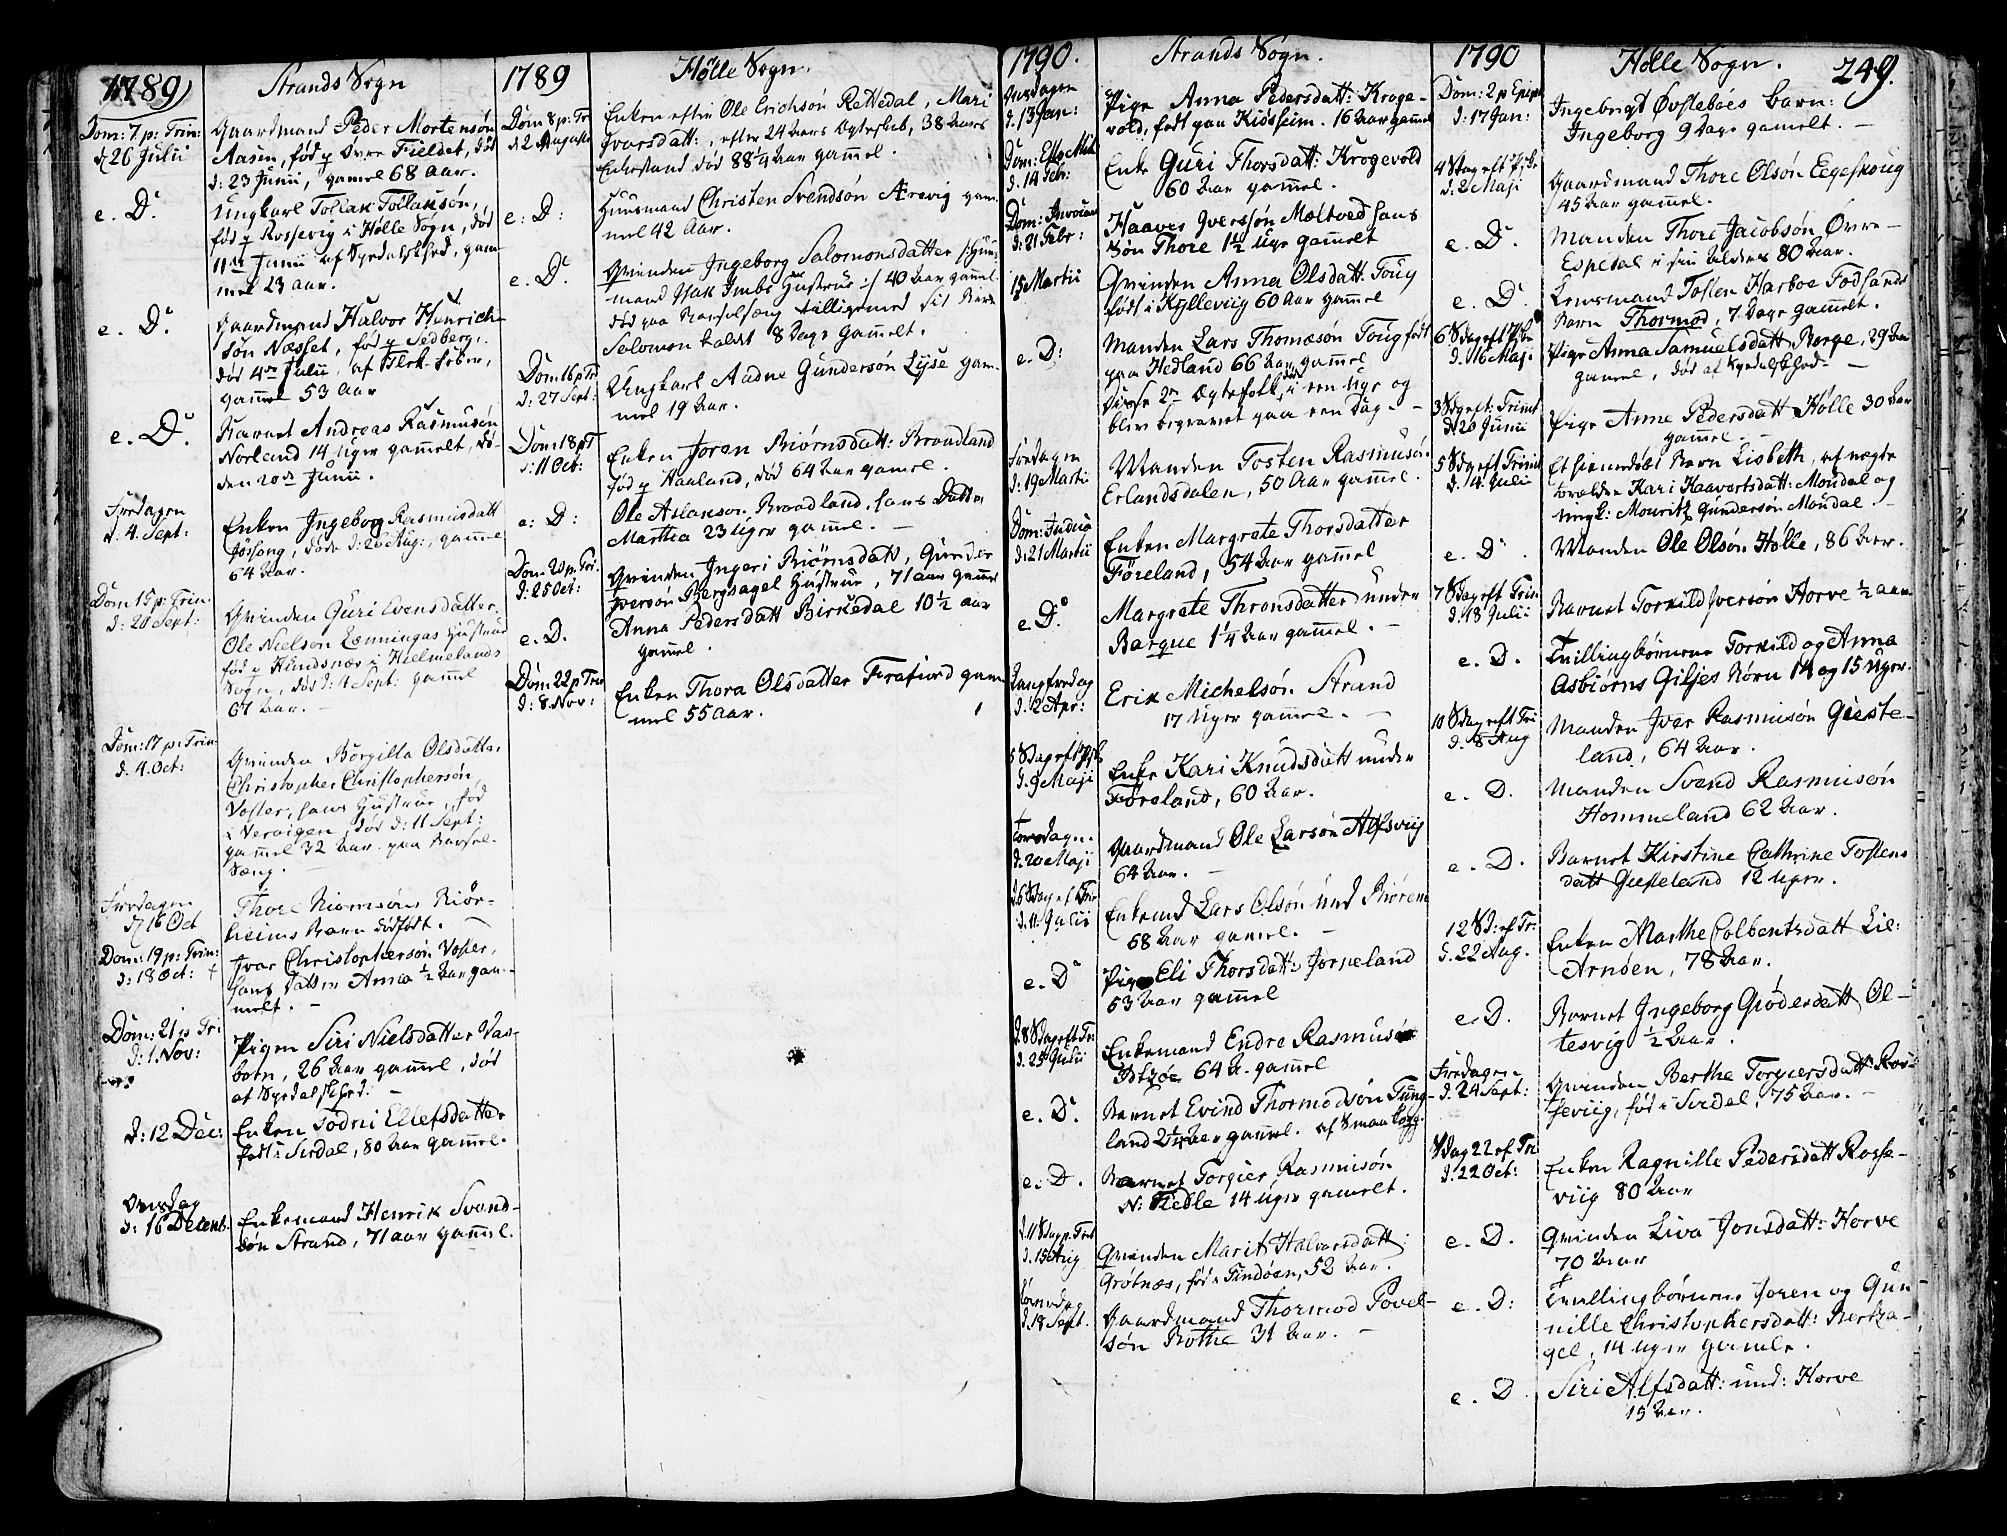 1789
Strands Sogn
Dom: 7 p: Trin:
d 26 Julii
Gaardmand Peder Mortensøn
Aasen, fød p Øvre Fieldet, død
d: 23 Junii, gamel 68 Aar.
e. D.
Ungkarl Tollak Tollaksøn,
fød p Rossevig i Hølle Sogn, død
11te Junii af Syedalskhed, gam-
mel 23 aar.
e. D.
Gaardmand Halvor Henrich
søn Næsset, fød p Sedberg,
død 4de Julii, af Flek-feber,
gammel 53 Aar
e. D.
Barnet Andreas Rasmusøn
Norland 14 Uger gammelt, dø-
den 20de Junii.
Fredagen
d: 4. Sept:
Enken Ingeborg Rasmusdatt
Jøssang, døde d: 26 Aug:, gamel
64 Aar.
Dom 15 p: Trin.
d: 20 Sept:
Qvinden Guri Evensdatter
Ole Nielsøn Lemmingas Hustrue
fød p Hundsnæs i Hielmelands
Sogn, død d: 4 Sept: gammel
61 Aar. -
Dom: 17 p: Trin:
d. 4. Oct:
Qvinden Borgilla Olsdatter
Christopher Christophersøn
Voster, hans Hustrue, fød
i Nervigen, død d: 11 Sept:
gammel 32 Aar. paa Barsel-
Sæng. -
Fredagen
d 16 Oct
Thore Biørnsøn Biør-
heims Barn dødfødt.
Dom: 19 p: Trin:
d: 18 Oct:
Ivar Christophersøn Voster,
hans datter Anna ½ Aar gam-
melt. -
Dom: 21 p Tri
d: 1. Nov:
Pigen Siri Nielsdatter Vas-
boen, 26 Aar gammel, død
af Syedalskhed. -
d: 12 Dec:
Enken Todni Ellefsdatter
født i Sirdal, 80 Aar gammel.
Onsdag
d: 16 Decemb.
Enkemand Henrik Svend-
søn Strand, 71 aar gammel.
1789
Hølle Sogn.
Dom 8 p: Tr
d 2 Augusti
Enken efter Ole Erichsøn Rettedal, Mari
Ivarsdatt:, efter 24 Aars Egteskab, 38 Aars
Enkestand død 88¼ Aar gammel.
e: D:
Huusmand Christen Svendsøn Ærevig gam-
mel 42 Aar.
e. D.
Qvinden Ingeborg Salomonsdatter /: Huus-
mand Isak Imbs Hustrue :/ 40 Aar gammel
død paa Barselsæng tilligemed sit Barn
Salomon kaldt 8 Dage Gammelt.
Dom 16 p Tri
d: 27 Sept:
Ungkarl Aadne Gundersøn Lyse gam-
mel 19 Aar.
Dom 18 p T
d: 11 Oct:
Enken Joren Biørnsdatt: Braadland
fød p Haaland, død 64 Aar gamel.
e: D:
Ole Aslaksøn Braadland, hans Datter
Marthea 23 Uger gammel. -
Dom. 20 p. Tri.
d: 25 Oct:
Qvinden Ingeri Biørnsdatt, Gunder
Iversøn Bergsagel Hustrue, 71 aar gamel
e. D.
Anna Pedersdatt Birkedal 10½ aar
gamel.
Dom 22 p Trin
d: 8. Nov:
Enken Thora Olsdatter Frafiord gam-
mel 55 Aar.
1790.
Strands Sogn.
Onsdagen
d. 13 Jan:
Pige Anna Pedersdatt: Kroge-
vold, født paa Kidsheim. 16 Aar gammel
Dom: Esto Mihi
d. 14 Febr:
Enke Guri Thorsdatt: Krogevold
60 Aar gammel.
Dom: Invocav
d: 21 Febr:
Haaver Iversøn Mæltved hans
Søn Thore 1½ Uge gammelt
15 Martii
Qvinden Anna Olsdatt: Toug
født i Kylleviig 60 Aar gammel
e. D:
Manden Lars Thomæsøn Toug født
paa Hedland 66 Aar gammel
Disse 2de Egtefolk døde i een Uge og
blev begravet paa een Dag. -
Fredagen
d: 19 Marti
Manden Tosten Rasmusøn
Erlandsdalen, 50 Aar gammel.
Dom: Judica
d: 21 Martii
Enken Margrete Thorsdatter
Føreland, 54 Aar gammel
e. D.
Margrete Thronsdatter under
Barque 1¼ Aar gammel. -
Langfredag
d. 2 Apr:
Erik Michelsøn Strand
17 Uger gammel. -
5 Sdag eft Pask
d. 9 Maji
Enke Kari Knudsdatt under
Føreland, 60 Aar.
Torsdagen
d. 20 Maji
Gaardmand Ole Larsøn Alfsviig
64 Aar. -
d. 6 Sdag ef Trin
d. 11 Julii
Enkemd Lars Olsøn und
68 Aar gammel. -
e. D
Pige Eli Thorsdatt: Jorpeland
53 Aar gammel
d. 8 Sdag eft Tr:
d. 25 Julii
Enkemand Endre Rasmusøn
Idtzøe 64 A. gammel
e. D.
Barnet Evind Thormodsøn Tung-
land 2¼ Aar gammel. af Smaakopp.
e. D.
Barnet Torgier Rasmusøn
N: Fiedle 14 Uger gamelt.
d. 11 Sdag p. Trin
d. 15 Aug
Qvinden Marit Halvorsdatt:
Grøtnæs, fød i Findøen, 52 Aar.
d. 18 Sept.
Gaardmand Thormod Povel-
søn Bothe 31 Aar. -
1790
Hølle Sogn.
249.
Dom: 2 p Epiph
d: 17 Jan:
Ingebrigt Øvstebøes Barn:
Ingeborg 9 Dage gamelt. -
4 Sdag eft Paske
d. 2 Maji
Gaardmand Thore Olsøn Eegeskoug
45 Aar gammel.
e. D.
Manden Thore Jacobsøn Øvre-
Espedal i sin Alders 80 Aar.
e. D.
Lensmand Tosten Harboe Fodslands
Barn Thormod, 7 Dage gammelt.
6 Sdag eft Paske
d. 16 Maji
Pige Anna Samuelsdatt Berge, 29 Aar
gammel, død af Syedalskhed. -
3 Sdag eft: Trinit
d 20 Junii
Pige Anne Pedersdatt Hølle 30 Aar
gamel. -
5 Sdag eft Trinit
d. 4. Julii
Et hiemedøbt Barn Lisbeth, af uægte
forældre Kari Haavertsdatt: Mondal og
Ungk: Mouritz Gundersøn Mondal.
e. D.
Manden Ole Olsøn Hølle, 86 Aar.
7 Sdag eft Trin
d. 18 Julii
Barnet Torkild Iversøn Horve ½ aar.
e. D.
Tvillingbørnene Torkild og Anna
Asbiørns Giljes Børn 14 og 15 Uger.
10 Sdag eft Tri
d. 8 Aug
Manden Ivar Rasmusøn Gieste-
land, 64 Aar.
e. D.
Manden Svend Rasmusøn
Hommeland 62 Aar.
e. D.
Barnet Kirstine Cathrine Tostens
datt Giesteland 12 Uger.
12 Sd: ef Tr:
d. 22 Aug.
Enken Marthe Colbentsdatt Lil:
Arnøen, 78 Aar.
e. D.
Barnet Ingeborg Grødersdatt Ol-
tesvig ½ Aar.
Fredagen
d. 24 Sept:
Qvinden Berthe Torgiersdatt Ros-
seviig, fød i Sirdal, 75 Aar. -
Sdag 22 ef Tri
d. 22 Oct:
Enken Ragnille Pedersdatt Rosse-
viig 80 Aar
e. D.
Qvinden Liva Jonsdatt: Horve
70 Aar
e. D:
Tvillingbørnene Joren og Gun-
nille Christophersdatt: Bertza-
gel, 14 Uger gamle.
e. D.
Siri Alfsdatt: und: Horve
15 Aar.